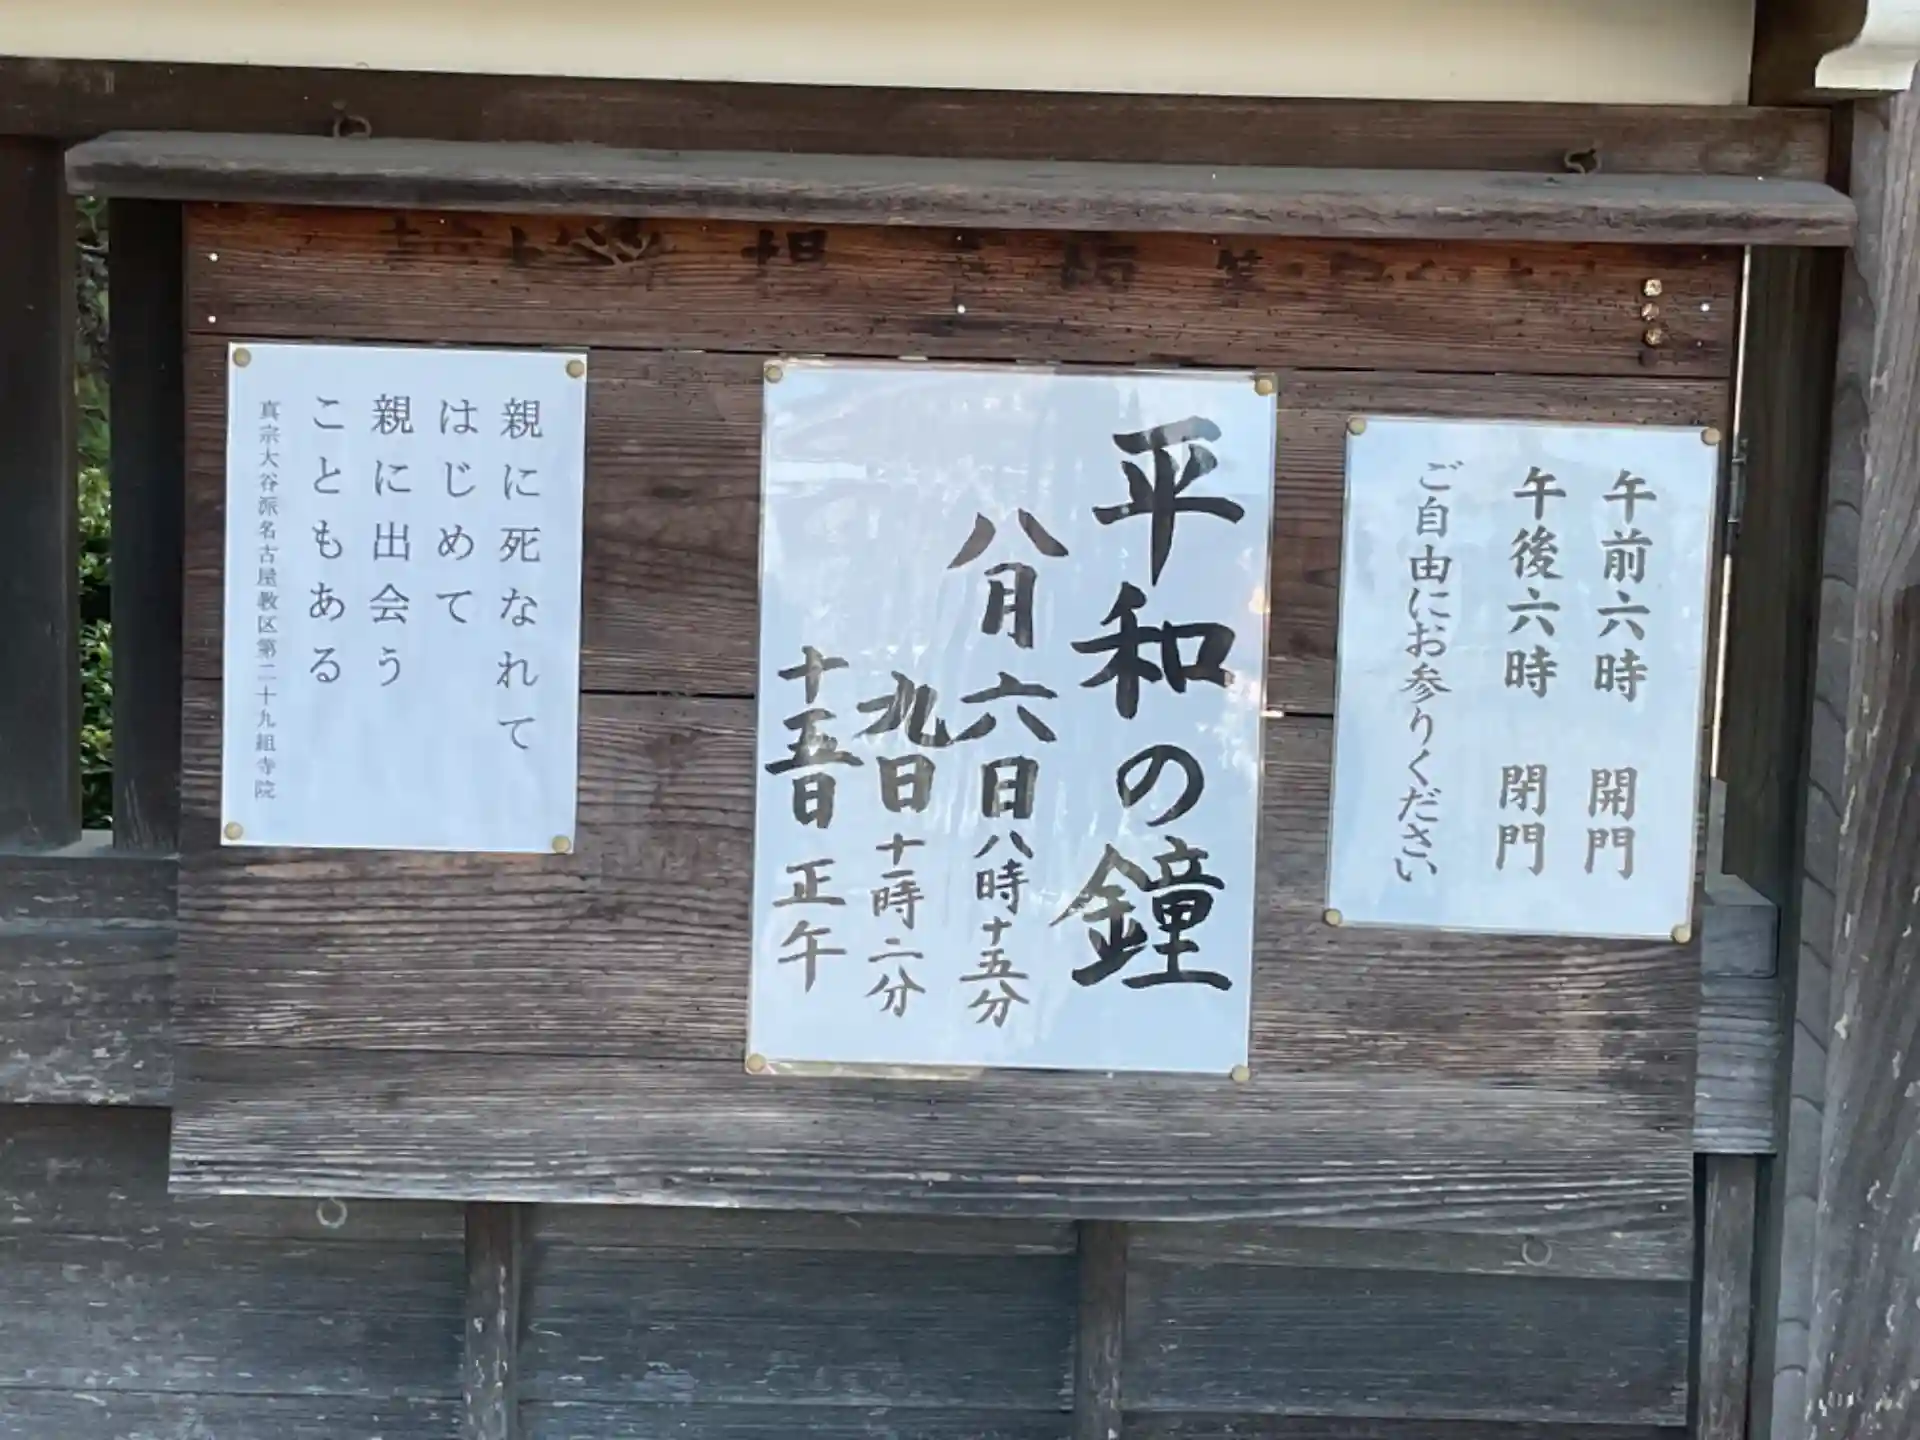 午前六時 開門
午後六時 閉門
ご自由にお参りください
平和の鐘
八月六日八時十五分
九日十一時二分
十五日正午
親に死なれて
はじめて
親に出会う
こともある
真宗大谷派名古屋教区第二十九組寺院